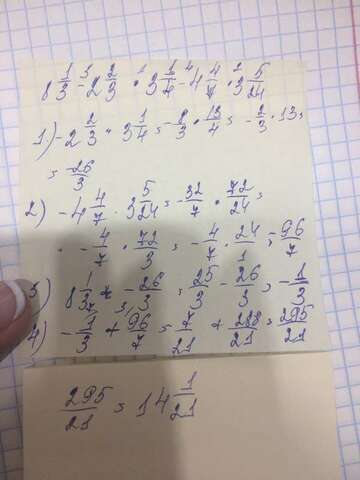 8 1/3 - 2 2/3 · 3 1/4 - 4 4/7 · 3 5/24
1) - 2 2/3 · 3 1/4 = - 8/3 · 13/4 = - 2/3 · 13 =
= 26/3
2) - 4 4/7 · 3 5/24 = - 32/7 · 72/24 =
- 4/7 · 72/3 = - 4/7 · 24/1 = - 96/7
3) 8 1/3 + - 26/3 = 25/3 - 26/3 = - 1/3
4) - 1/3 + 96/7 = 7/21 + 288/21 = 295/21
295/21 = 14 1/21